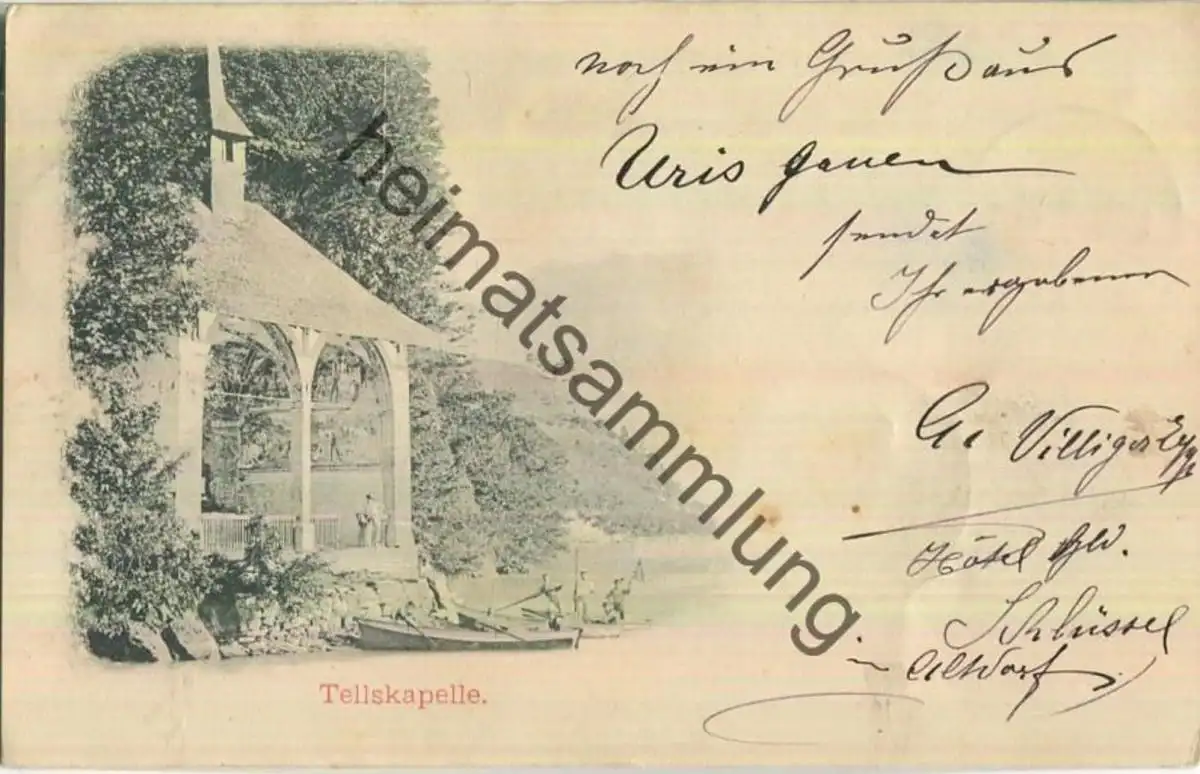 noch ein Gruß aus
Uris Gauen
sendet
Ihr ergebener
Villiger
Hôtel
Schlüssel
in Altdorf
Tellskapelle.
heimatsammlung